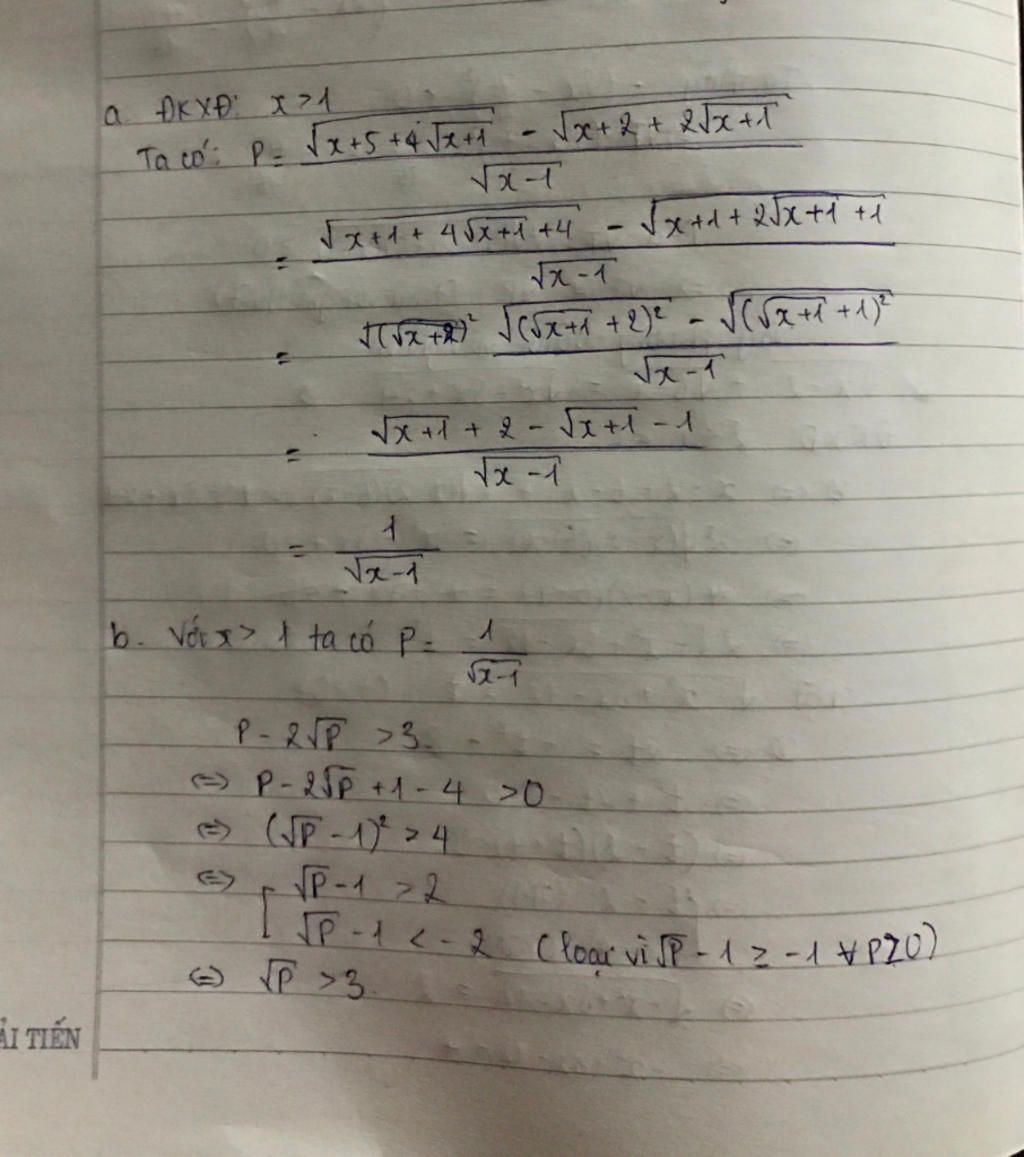 a. ĐKXĐ: x > 1
Ta có: P = (√(x+5+4√(x+1)) - √(x+2+2√(x+1))) / √(x-1)
= (√(x+1+4√(x+1)+4) - √(x+1+2√(x+1)+1)) / √(x-1)
= (√((√(x+1)+2)²) - √((√(x+1)+1)²)) / √(x-1)
= (√(x+1) + 2 - √(x+1) - 1) / √(x-1)
= 1 / √(x-1)
b. Với x > 1 ta có P = 1 / √(x-1)
P - 2√P > 3
⇔ P - 2√P + 1 - 4 > 0
⇔ (√P - 1)² > 4
⇔ [ √P - 1 > 2
√P - 1 < -2 (loại vì √P - 1 ≥ -1 ∀ P≥0)
⇔ √P > 3
ẢI TIẾN